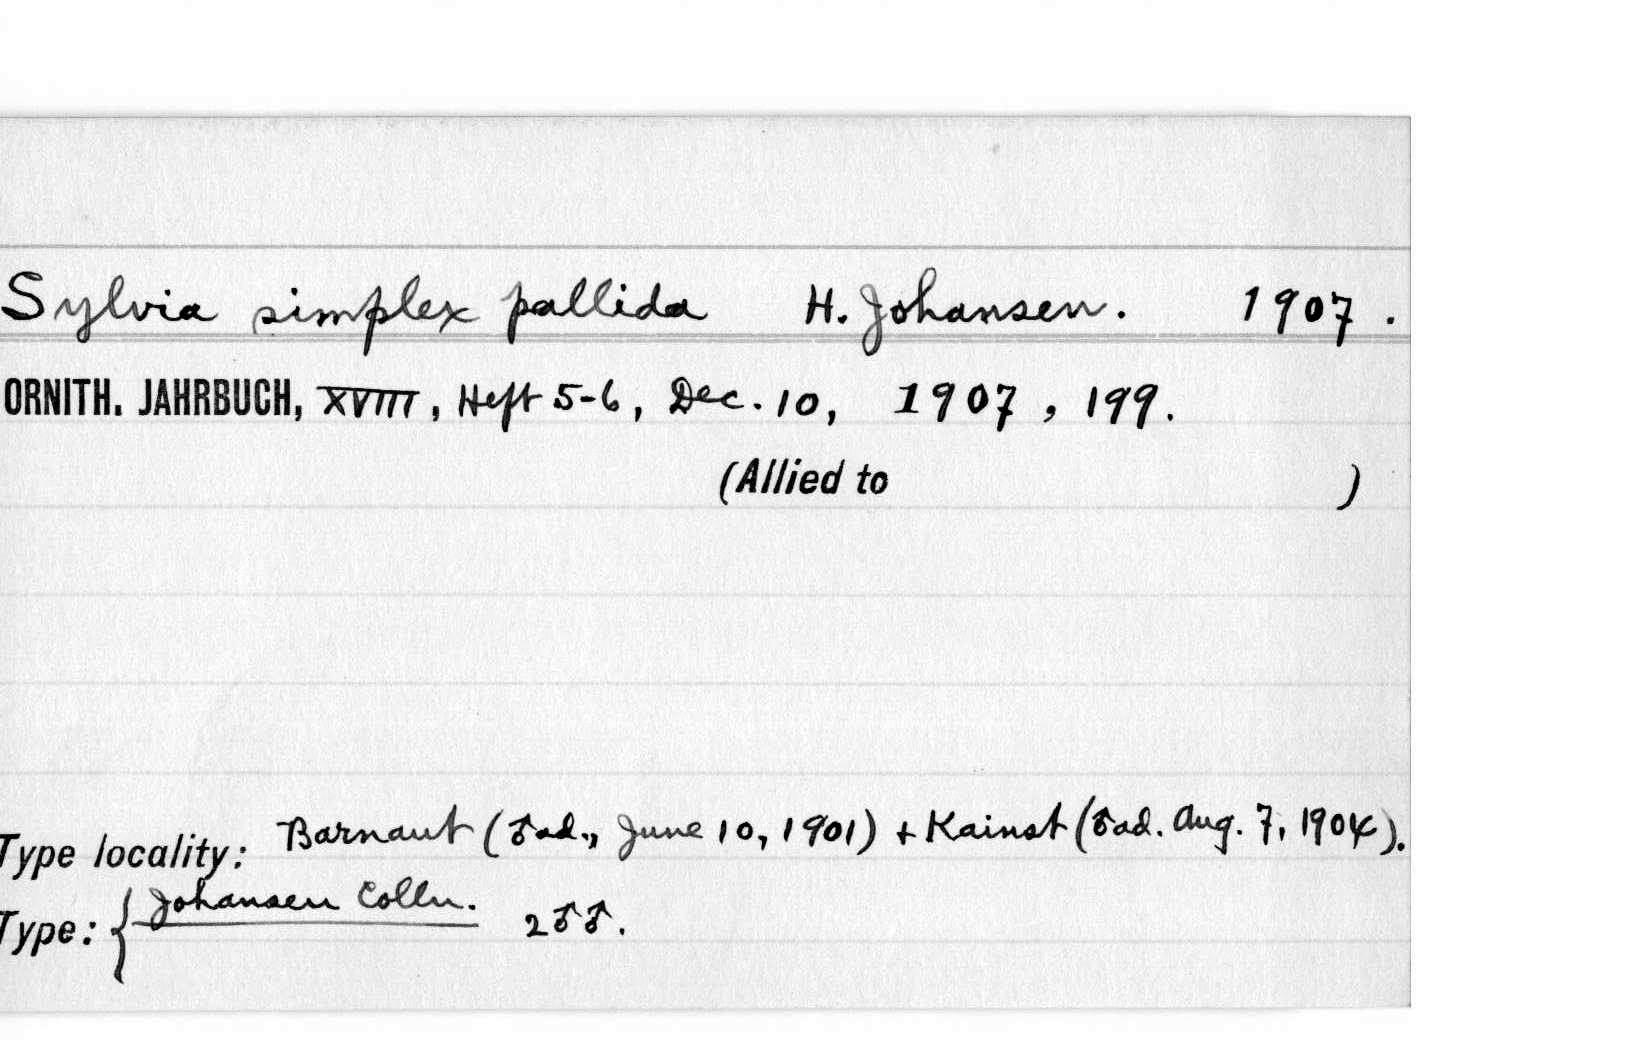 Sylvia simplex pallida H. Johansen. 1907.
ORNITH. JAHRBUCH, XVIII, Heft 5-6, Dec. 10, 1907, 199.
(Allied to )
Type locality: Barnaut (♂ad., June 10, 1901) + Kainst (♂ad. Aug. 7, 1904).
Type: { Johansen Colln. 2♂♂.